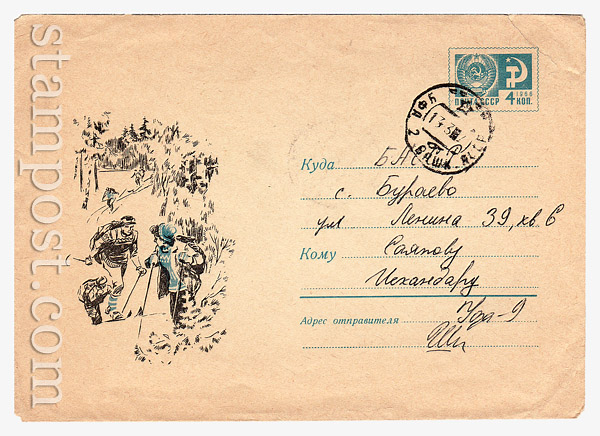 stampost.com
1966
ПОЧТА СССР 4 КОП.
УФА
Куда БАССР
с. Бураево
ул Ленина 39, кв 6
Кому Саяпову
Искандару
Адрес отправителя Уфа-9